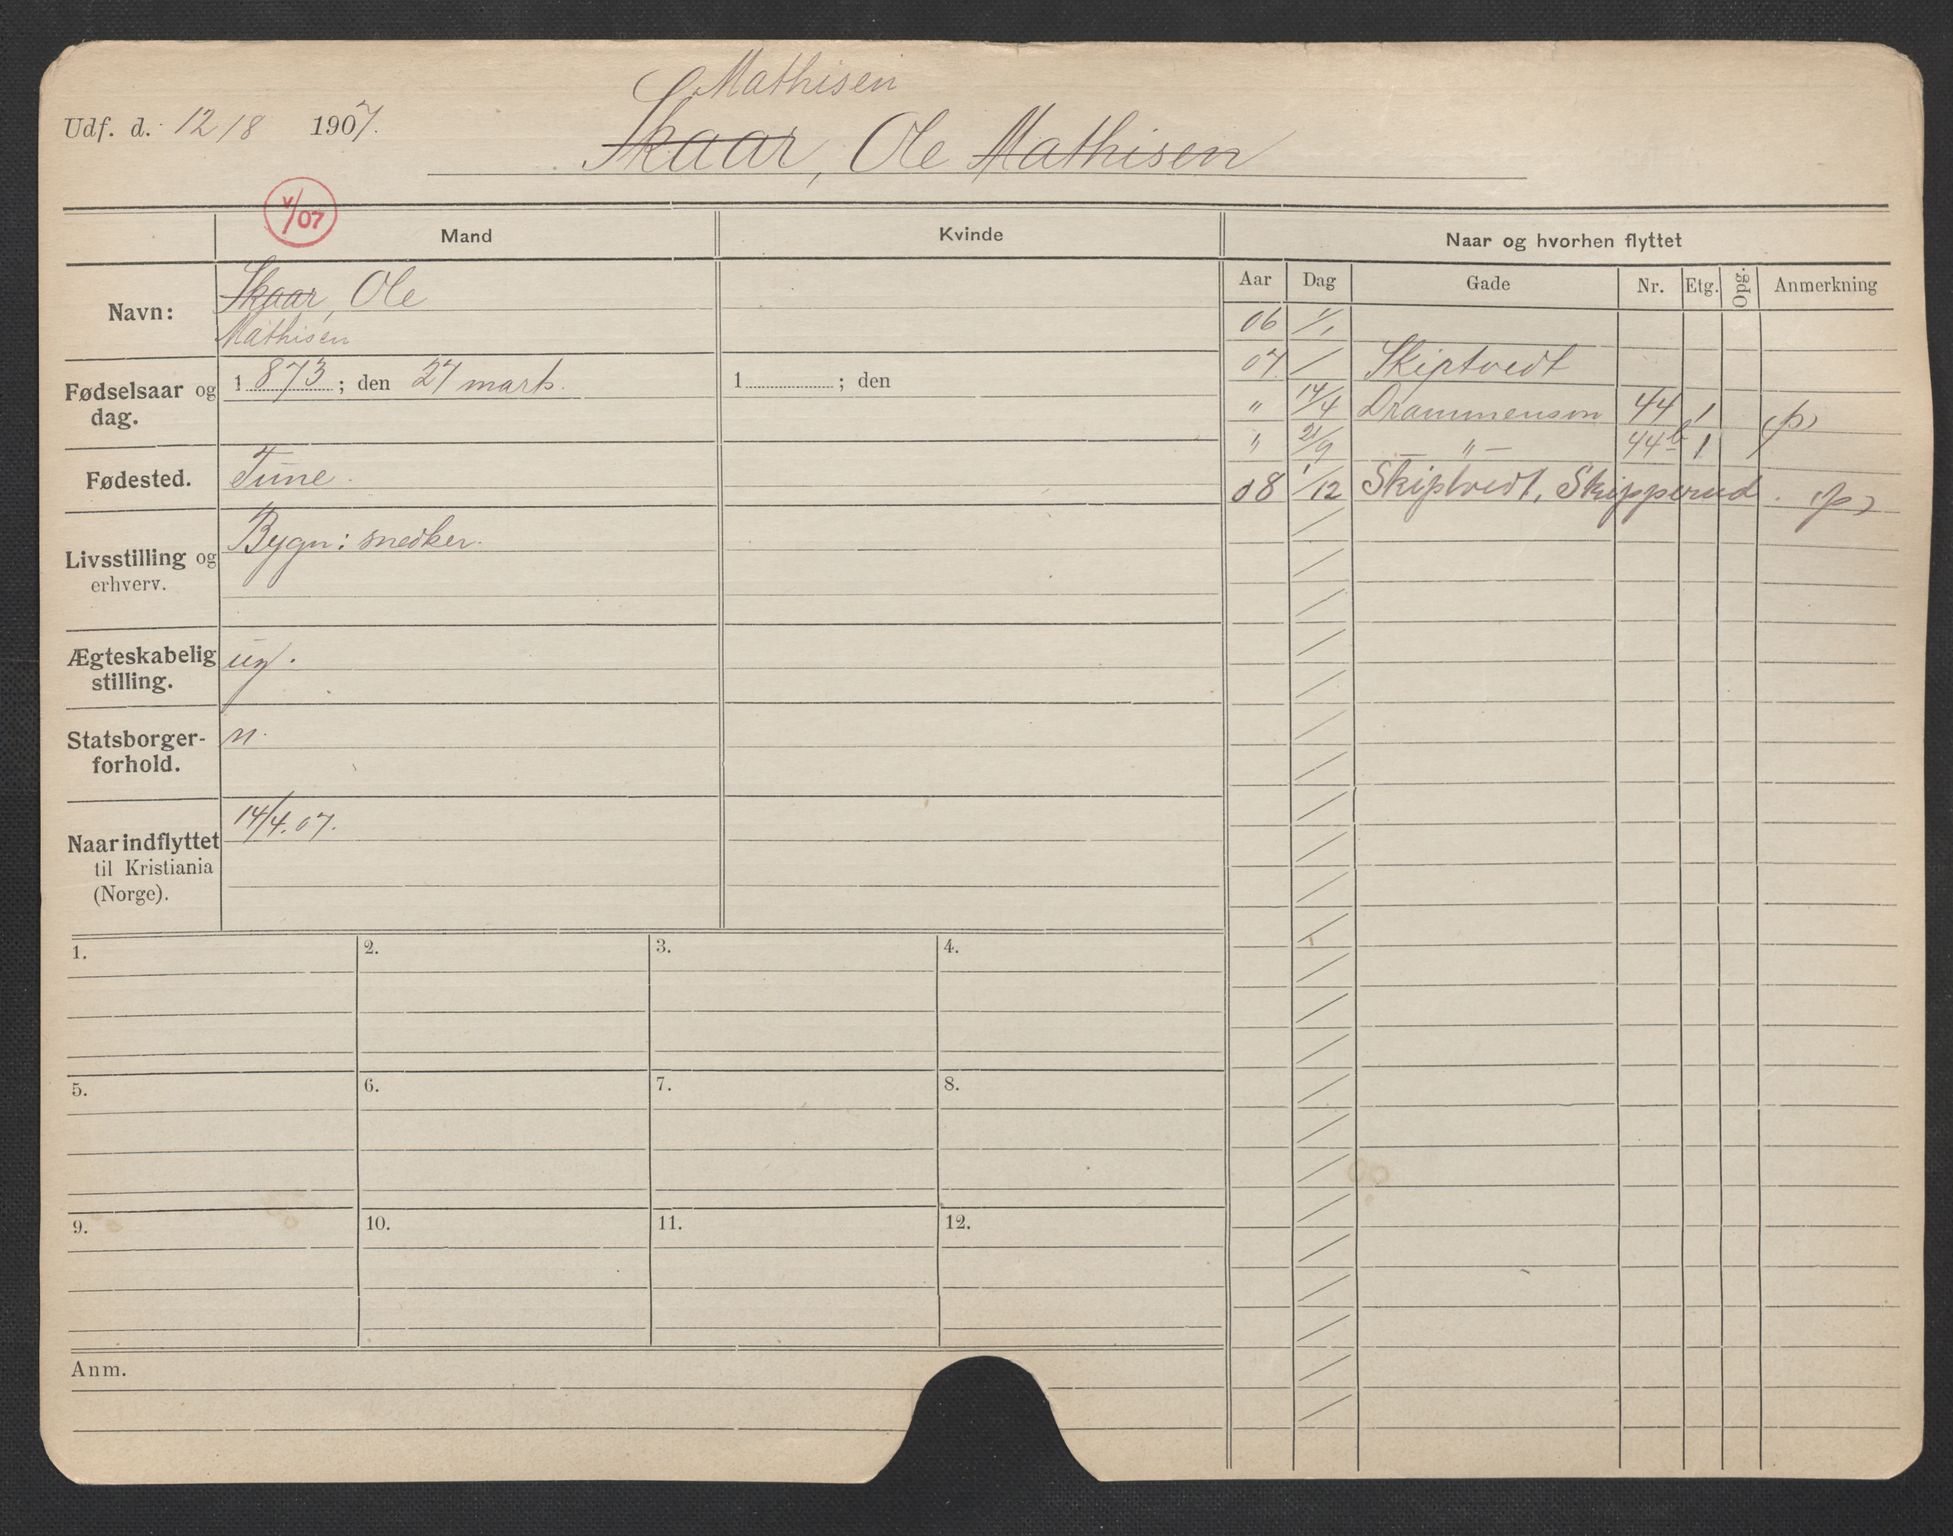 Mathisen
Udf. d. 12/8 1907.
Skaar, Ole Mathisen
v/07
Mand
Kvinde
Naar og hvorhen flyttet
Aar Dag Gade Nr. Etg. Opg. Anmerkning
Navn: Skaar, Ole
Mathisen
Fødselsaar og dag. 1873; den 27 marts.
1 ; den
Fødested. Tune.
Livsstilling og erhverv. Bygn: snedker.
Ægteskabelig stilling. ug.
Statsborgerforhold. n.
Naar indflyttet til Kristiania (Norge). 14/4.07.
06 1/1
07 / Skiptvedt
" 14/4 Drammensvn 44 1 (p)
" 21/9 — " — 44b 1
08 1/12 Skiptvedt, Skipperud. (p)
1. 2. 3. 4.
5. 6. 7. 8.
9. 10. 11. 12.
Anm.